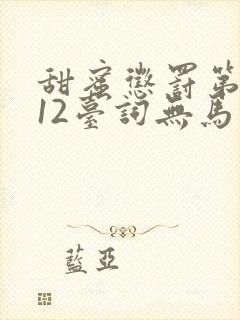 甜蜜懲罰第
12臺詞無馬
藍亞